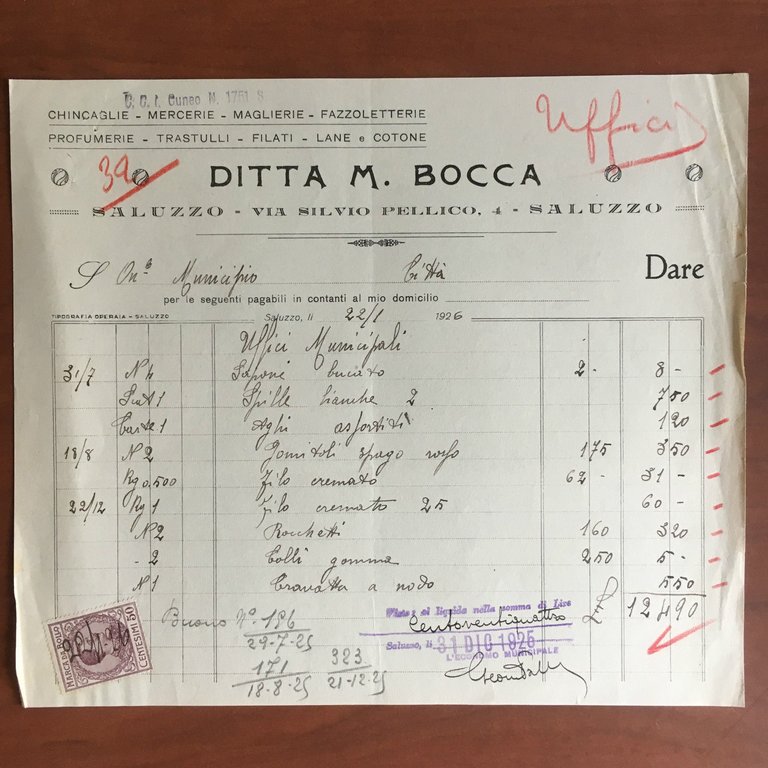 C. C. I. Cuneo N. 1751 S
CHINCAGLIE - MERCERIE - MAGLIERIE - FAZZOLETTERIE
PROFUMERIE - TRASTULLI - FILATI - LANE e COTONE
Uffici
39
DITTA M. BOCCA
SALUZZO - VIA SILVIO PELLICO, 4 - SALUZZO
S On. Municipio Città Dare
per le seguenti pagabili in contanti al mio domicilio
TIPOGRAFIA OPERAIA - SALUZZO Saluzzo, li 22/1 1926
Uffici Municipali
31/7 N 4 Sapone bucato 2 - 8 -
1 Spille bianche 2 7 50
1 Aghi assortiti 1 20
18/8 N 2 Gomitoli spago rosso 1 75 3 50
Kg 0,500 Filo cremato 62 - 31 -
22/12 Kg 1 Filo cremato 25 60 -
N 2 Rocchetti 1 60 3 20
- 2 Colli gomma 2 50 5 -
N 1 Cravatta a nodo 5 50
124 90
MARCA DA BOLLO
CENTESIMI 50
Buono N° 196
29-7-25
171
18-8-25
323
21-12-25
Visto: si liquida nella somma di Lire
Centoventiquattro
Saluzzo, li 31 DIC 1925
L'ECONOMO MUNICIPALE